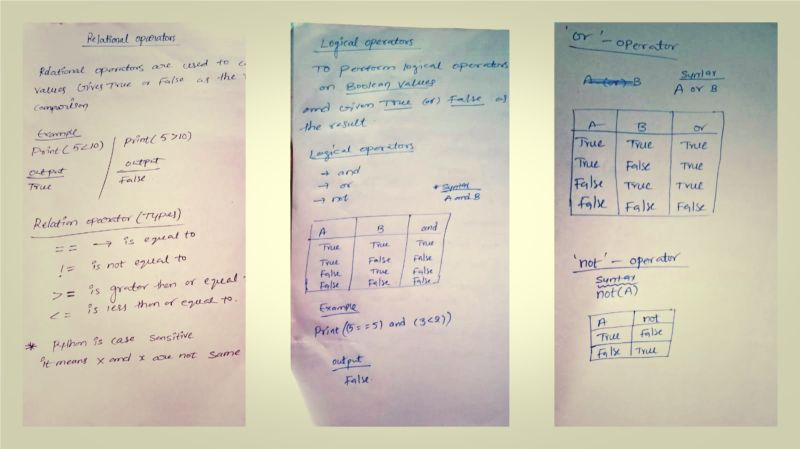 Relational operators
Relational operators are used to
values Gives True or False as the
comparision
Example
Print(5<10)
output
True
Print(5>10)
output
False
Relation operator (Types)
== → is equal to
!= is not equal to
>= is grater then or equal
<= is less then or equal to.
* Python is case sensitive
it means X and x are not same
Logical operators
To perform logical operators
on Boolean values
and Given True (or) False as
the result
Logical operators
→ and
→ or
→ not
* Syntax
A and B
A B and
True True True
True False False
False True False
False False False
Example
Print (5==5) and (3<2))
output
False
'or' - operator
A (or) B
Syntax
A or B
A B or
True True True
True False True
False True True
False False False
'not' - operator
Syntax
not(A)
A not
True False
False True